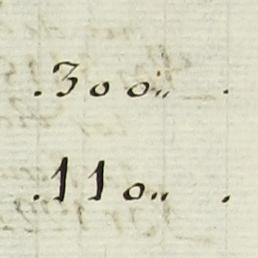 .300,, .
.110,, .